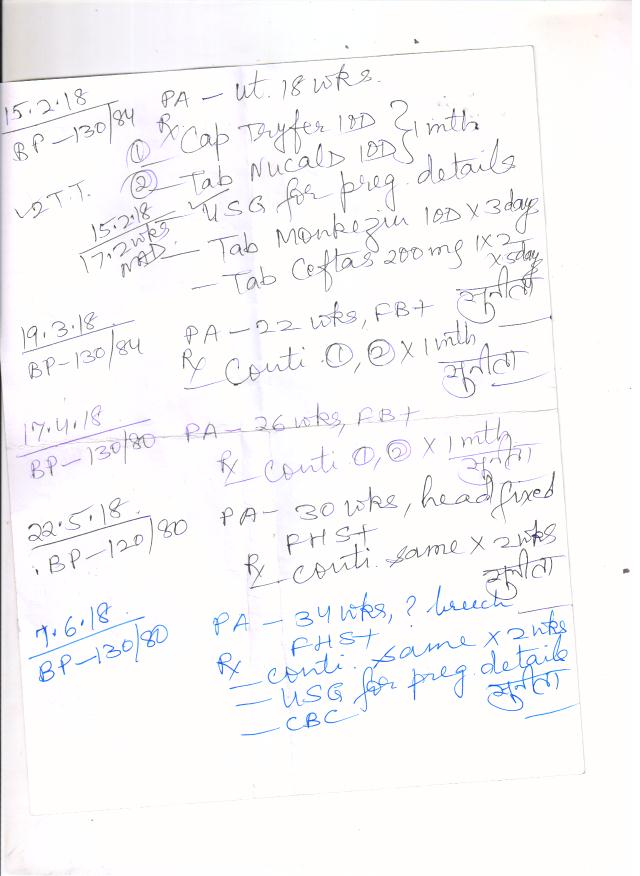 15.2.18
BP-130/84
PA - ut. 18 wks.
Rx
① Cap Dryfer 1OD } 1 mth
② Tab Nucal D 1OD
✓2 T.T.
- USG for preg. details
15.2.18 ✓
17.2 wks
NAD.
- Tab Monkezin 1OD X 3 day
- Tab Ceftas 200 mg 1X2 X 5 day
सुनीता
19.3.18
BP-130/84
PA - 22 wks, FB+
Rx
Conti ①, ② X 1 mth
सुनीता
17.4.18
BP-130/80
PA - 26 wks, FB+
Rx
conti ①, ② X 1 mth
सुनीता
22.5.18.
BP-120/80
PA - 30 wks, head fixed
FHS+
Rx
conti. same X 2 wks
सुनीता
7.6.18.
BP-130/80
PA - 34 wks, ? breech
FHS+
Rx
- conti. same X 2 wks
- USG for preg. details
- CBC
सुनीता